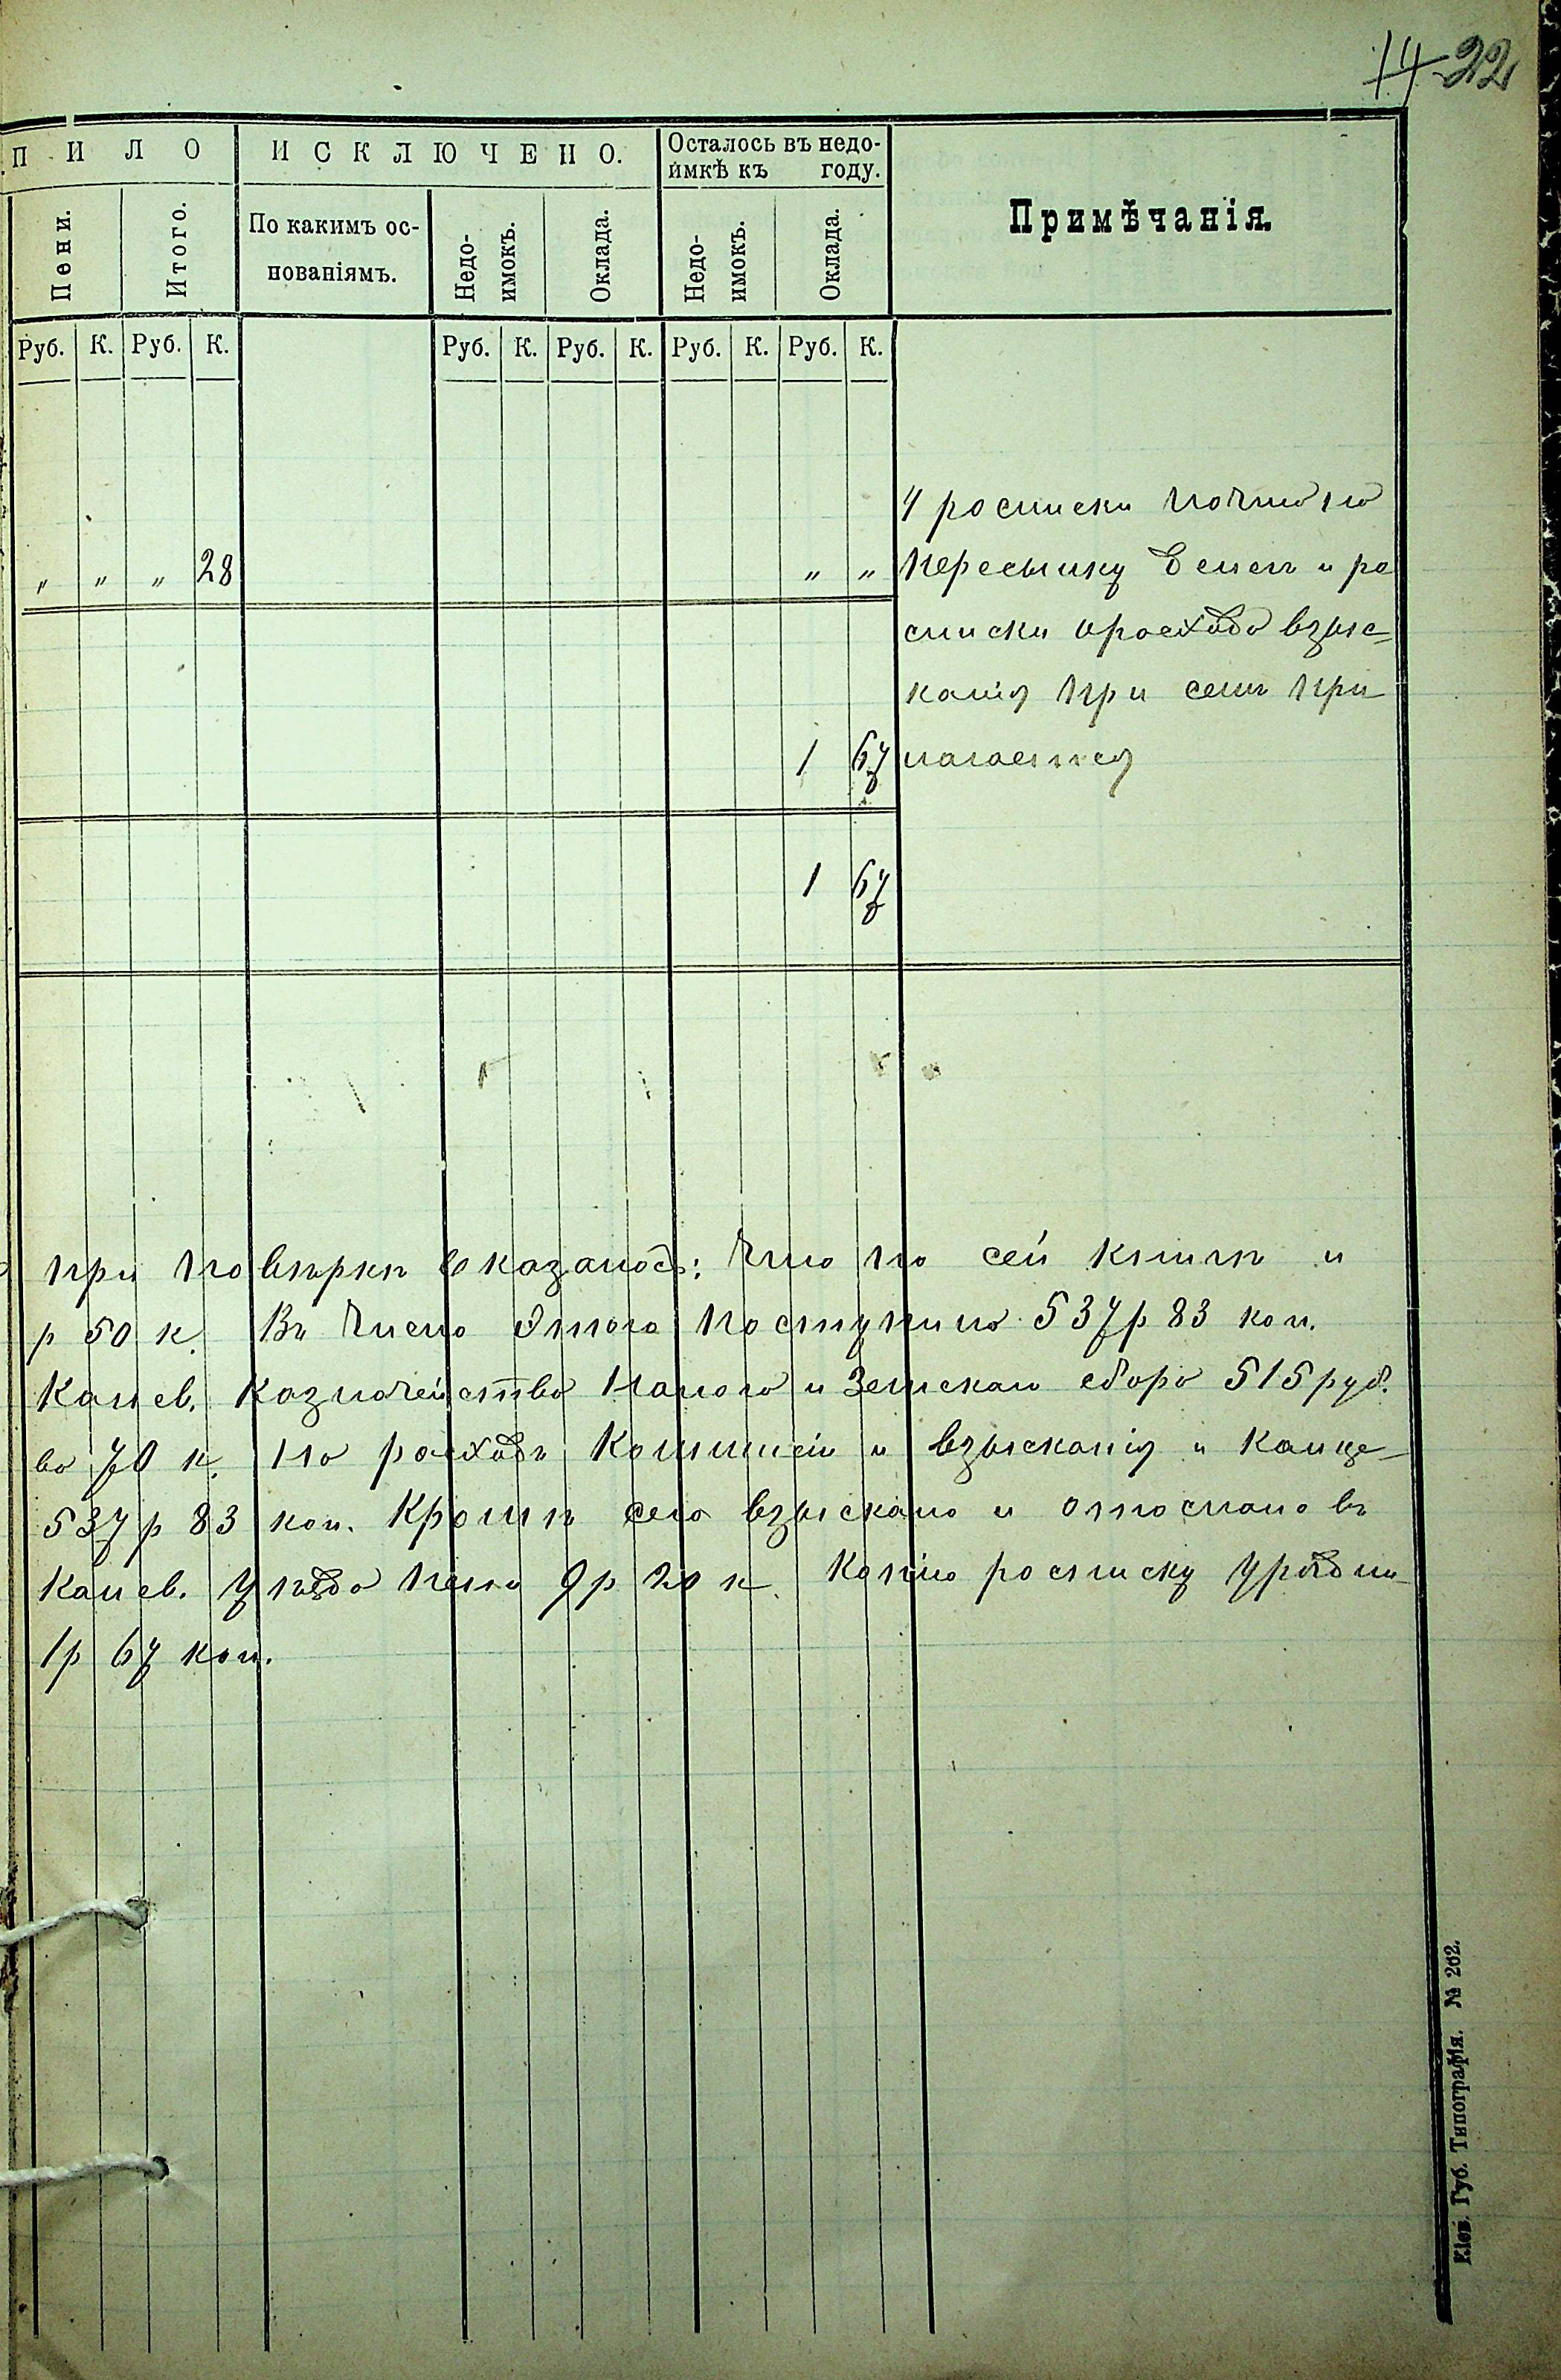 14 22
ПИЛО ИСКЛЮЧЕНО. Осталось въ недо-
имкѣ къ году. Примѣчанія.
Пени. Итого. По какимъ ос-
нованіямъ. Недо-
имокъ. Оклада. Недо-
имокъ. Оклада.
Руб. К. Руб. К. Руб. К. Руб. К. Руб. К. Руб. К.
4 росписки почто по
" " " 28 " " пересылку денегъ и ро
списки расхода взыс-
канія при семъ при
1 67 лагается
1 67
при повѣркѣ оказалось: что по сей книгѣ и
р 50 к. Въ число этого поступило 537 р 83 коп.
Канев. Казначейства и Земскаго сбора 515 руб.
во 70 к. по расходъ Коммисіи и взысканія и Канце-
537 р 83 коп. Кромѣ сего взыскано и отослано въ
Канев. уѣзда пени 9 р 20 к. Копію росписку
1 р 67 коп.
Кіев. Губ. Типографія. № 262.